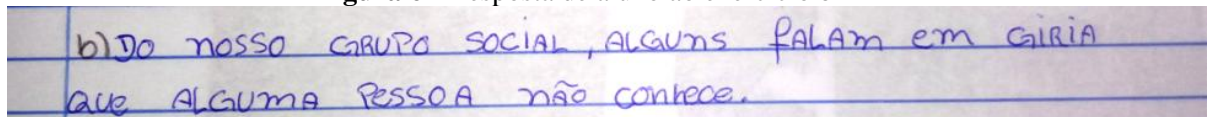 b) DO NOSSO GRUPO SOCIAL, ALGUNS FALAM EM GIRIA
QUE ALGUMA PESSOA NÃO CONHECE.